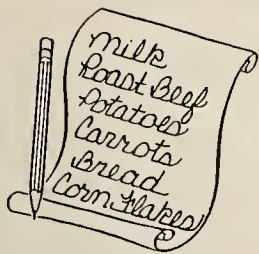 Milk
Roast Beef
Potatoes
Carrots
Bread
Corn Flakes